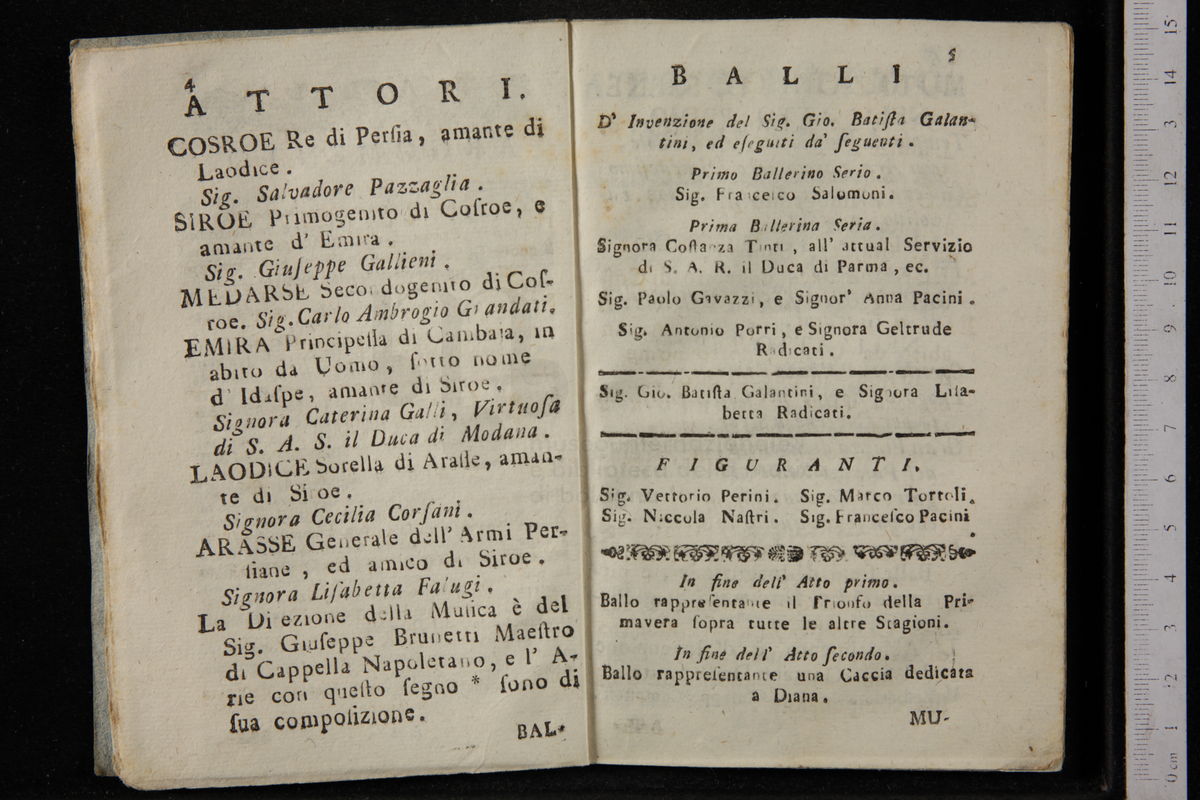 4
ATTORI.
COSROE Re di Perſia, amante di
Laodice.
Sig. Salvadore Pazzaglia.
SIROE Primogenito di Coſroe, e
amante d' Emira.
Sig. Giuſeppe Gallieni.
MEDARSE Secondogenito di Coſ-
roe. Sig. Carlo Ambrogio Grandati.
EMIRA Principeſſa di Cambaia, in
abito da Uomo, ſotto nome
d' Idaſpe, amante di Siroe.
Signora Caterina Galli, Virtuoſa
di S. A. S. il Duca di Modana.
LAODICE Sorella di Araſſe, aman-
te di Siroe.
Signora Cecilia Corſani.
ARASSE Generale dell' Armi Per-
ſiane, ed amico di Siroe.
Signora Liſabetta Falugi.
La Direzione della Muſica è del
Sig. Giuſeppe Brunetti Maeſtro
di Cappella Napoletano, e l' A-
rie con queſto ſegno * ſono di
ſua compoſizione.
BAL-
5
BALLI
D' Invenzione del Sig. Gio. Batiſta Galan-
tini, ed eſeguiti da' ſeguenti.
Primo Ballerino Serio.
Sig. Franceſco Salomoni.
Prima Ballerina Seria.
Signora Coſtanza Tinti, all' attual Servizio
di S. A. R. il Duca di Parma, ec.
Sig. Paolo Gavazzi, e Signor' Anna Pacini.
Sig. Antonio Porri, e Signora Geltrude
Radicati.
Sig. Gio. Batiſta Galantini, e Signora Liſa-
betta Radicati.
FIGURANTI.
Sig. Vettorio Perini. Sig. Marco Tortoli.
Sig. Niccola Naſtri. Sig. Franceſco Pacini
In fine dell' Atto primo.
Ballo rappreſentante il Trionfo della Pri-
mavera ſopra tutte le altre Stagioni.
In fine dell' Atto ſecondo.
Ballo rappreſentante una Caccia dedicata
a Diana.
MU-
0 cm 1 2 3 4 5 6 7 8 9 10 11 12 13 14 15